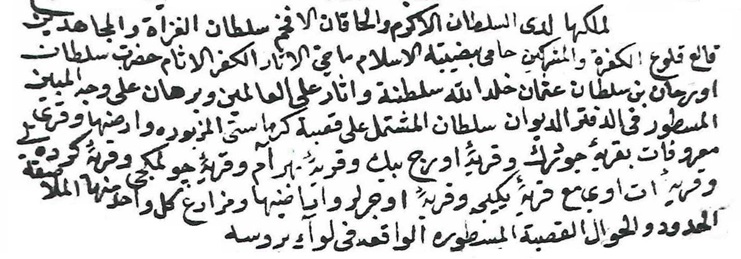 ملكها لدى السلطان الاكرم والخاقان الافخم سلطان الغزاة والمجاهدين
قالع قلوع الكفرة والمشركين حامى بيضة الاسلام ماحى الاثار الكفر الاثام حضرت سلطان
اورخان بن سلطان عثمان خلد الله سلطنة واثار على العالمين وبرهان على وجه المبين
المسطور فى الدفتر الديوان سلطان المشتمل على قصبة كرماستى المزبوره وارضيها وقرى
معروفات بقريۀ جوترك وقريۀ اورج بيك وقريۀ بهرام وقريۀ جولمكجى وقريۀ كرده
وقريۀ ات اوى مع قريۀ يكيجى وقريۀ اوجرلر واراضيها ومزارع كل واحد منها الملاصقة
الحدود والحوال القصبة المسطوره الواقعه فى لوآء بروسه